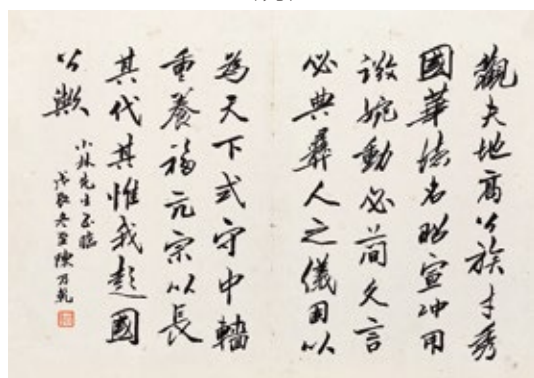 觀夫地高公族才秀
國華德名昭宣冲用
微婉動必簡久言
必典彝人之儀因以
為天下式守中輴
重養福元宗以長
其代其惟我彭國
公歟
小林先生正臨
戊歌冬至陳乃乾